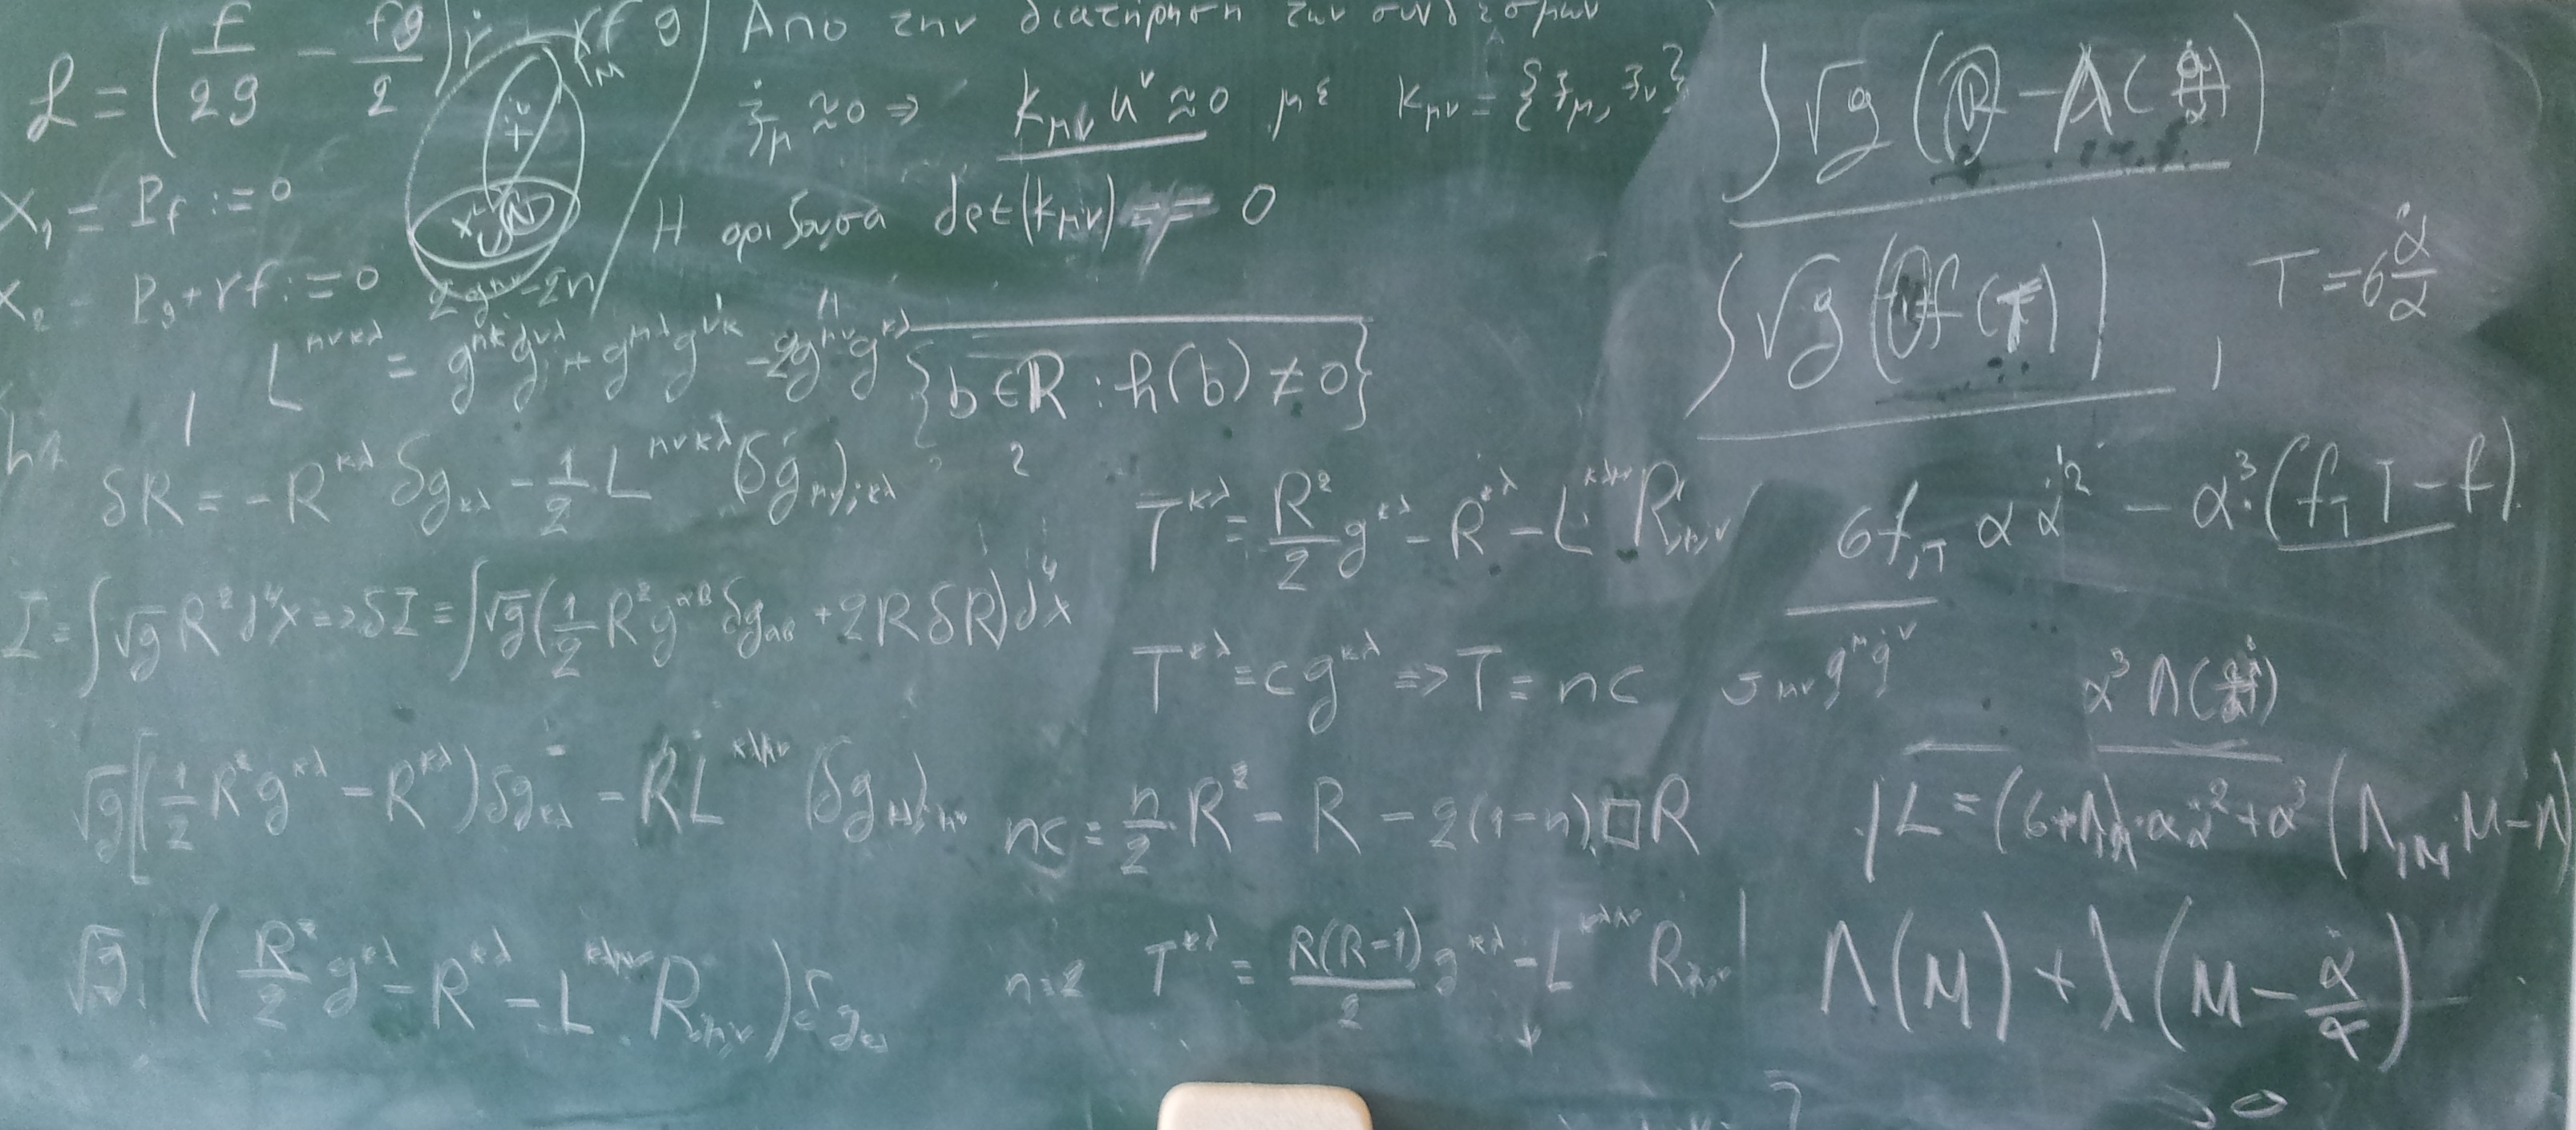 L = (f/2g − fg/2) ṙ − rf g
x₁ = P_f := 0
x₂ = P_g + rf := 0
Από την διατήρηση των συνδέσμων
ξ̇_μ ≈ 0 ⇒ k_μν u^ν ≈ 0 με k_μν = {ξ_μ, ξ_ν}
Η ορίζουσα det(k_μν) = 0
L^μνκλ = g^μκ g^νλ + g^μλ g^νκ − 2g^μν g^κλ
{b ∈ R : h(b) ≠ 0}
δR = −R^κλ δg_κλ − 1/2 L^μνκλ (δg_μν);κλ
I = ∫√g R² d⁴x ⇒ δI = ∫√g (1/2 R² g^αβ δg_αβ + 2RδR) d⁴x
√g [(1/2 R² g^κλ − R^κλ) δg_κλ − RL^κλμν (δg_κλ);μν
√g (R²/2 g^κλ − R^κλ − L^κλμν R;μν) δg_κλ
T^κλ = R²/2 g^κλ − R^κλ − L^κλμν R;μν
T^κλ = cg^κλ ⇒ T = nc
nc = n/2 R² − R − 2(1−n)□R
n=2 T^κλ = R(R−1)/2 g^κλ − L^κλμν R;μν
∫√g (R − Λ(α̇/α))
∫√g (f(T)), T = 6 α̇/α
6f,T α α̇² − α³ (f,T T − f)
α³ Λ(α̇/α)
L = (6+Λ,M) α α̇² + α³ (Λ,M M − Λ)
Λ(M) + λ (M − α̇/α)